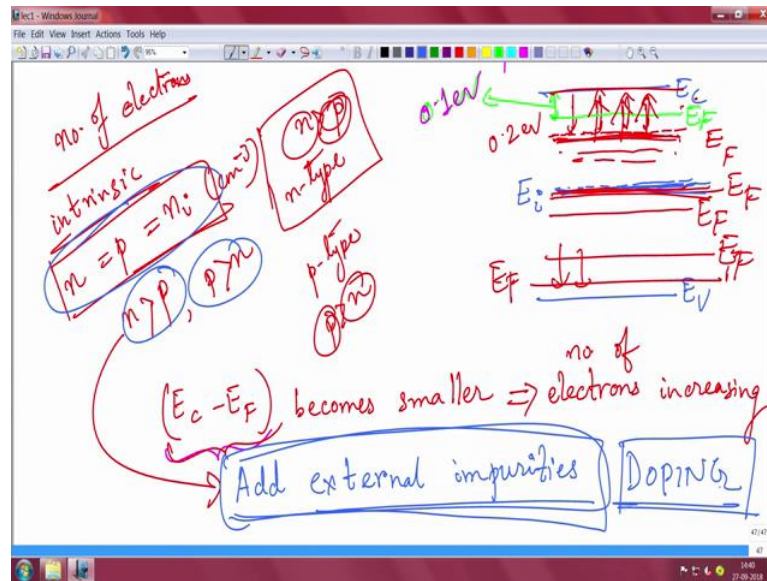 lec1 - Windows Journal
File Edit View Insert Actions Tools Help
no. of electrons
intrinsic
n = p = ni (cm-3)
n > p, p > n
n > p
n-type
p-type
p > n
0.1 eV
0.2 eV
Ec
EF
EF
Ei
EF
EF
EF
EF
Ev
(Ec - EF) becomes smaller ⇒ no of electrons increasing
Add external impurities
DOPING
47/47
47
14:40
27-09-2018